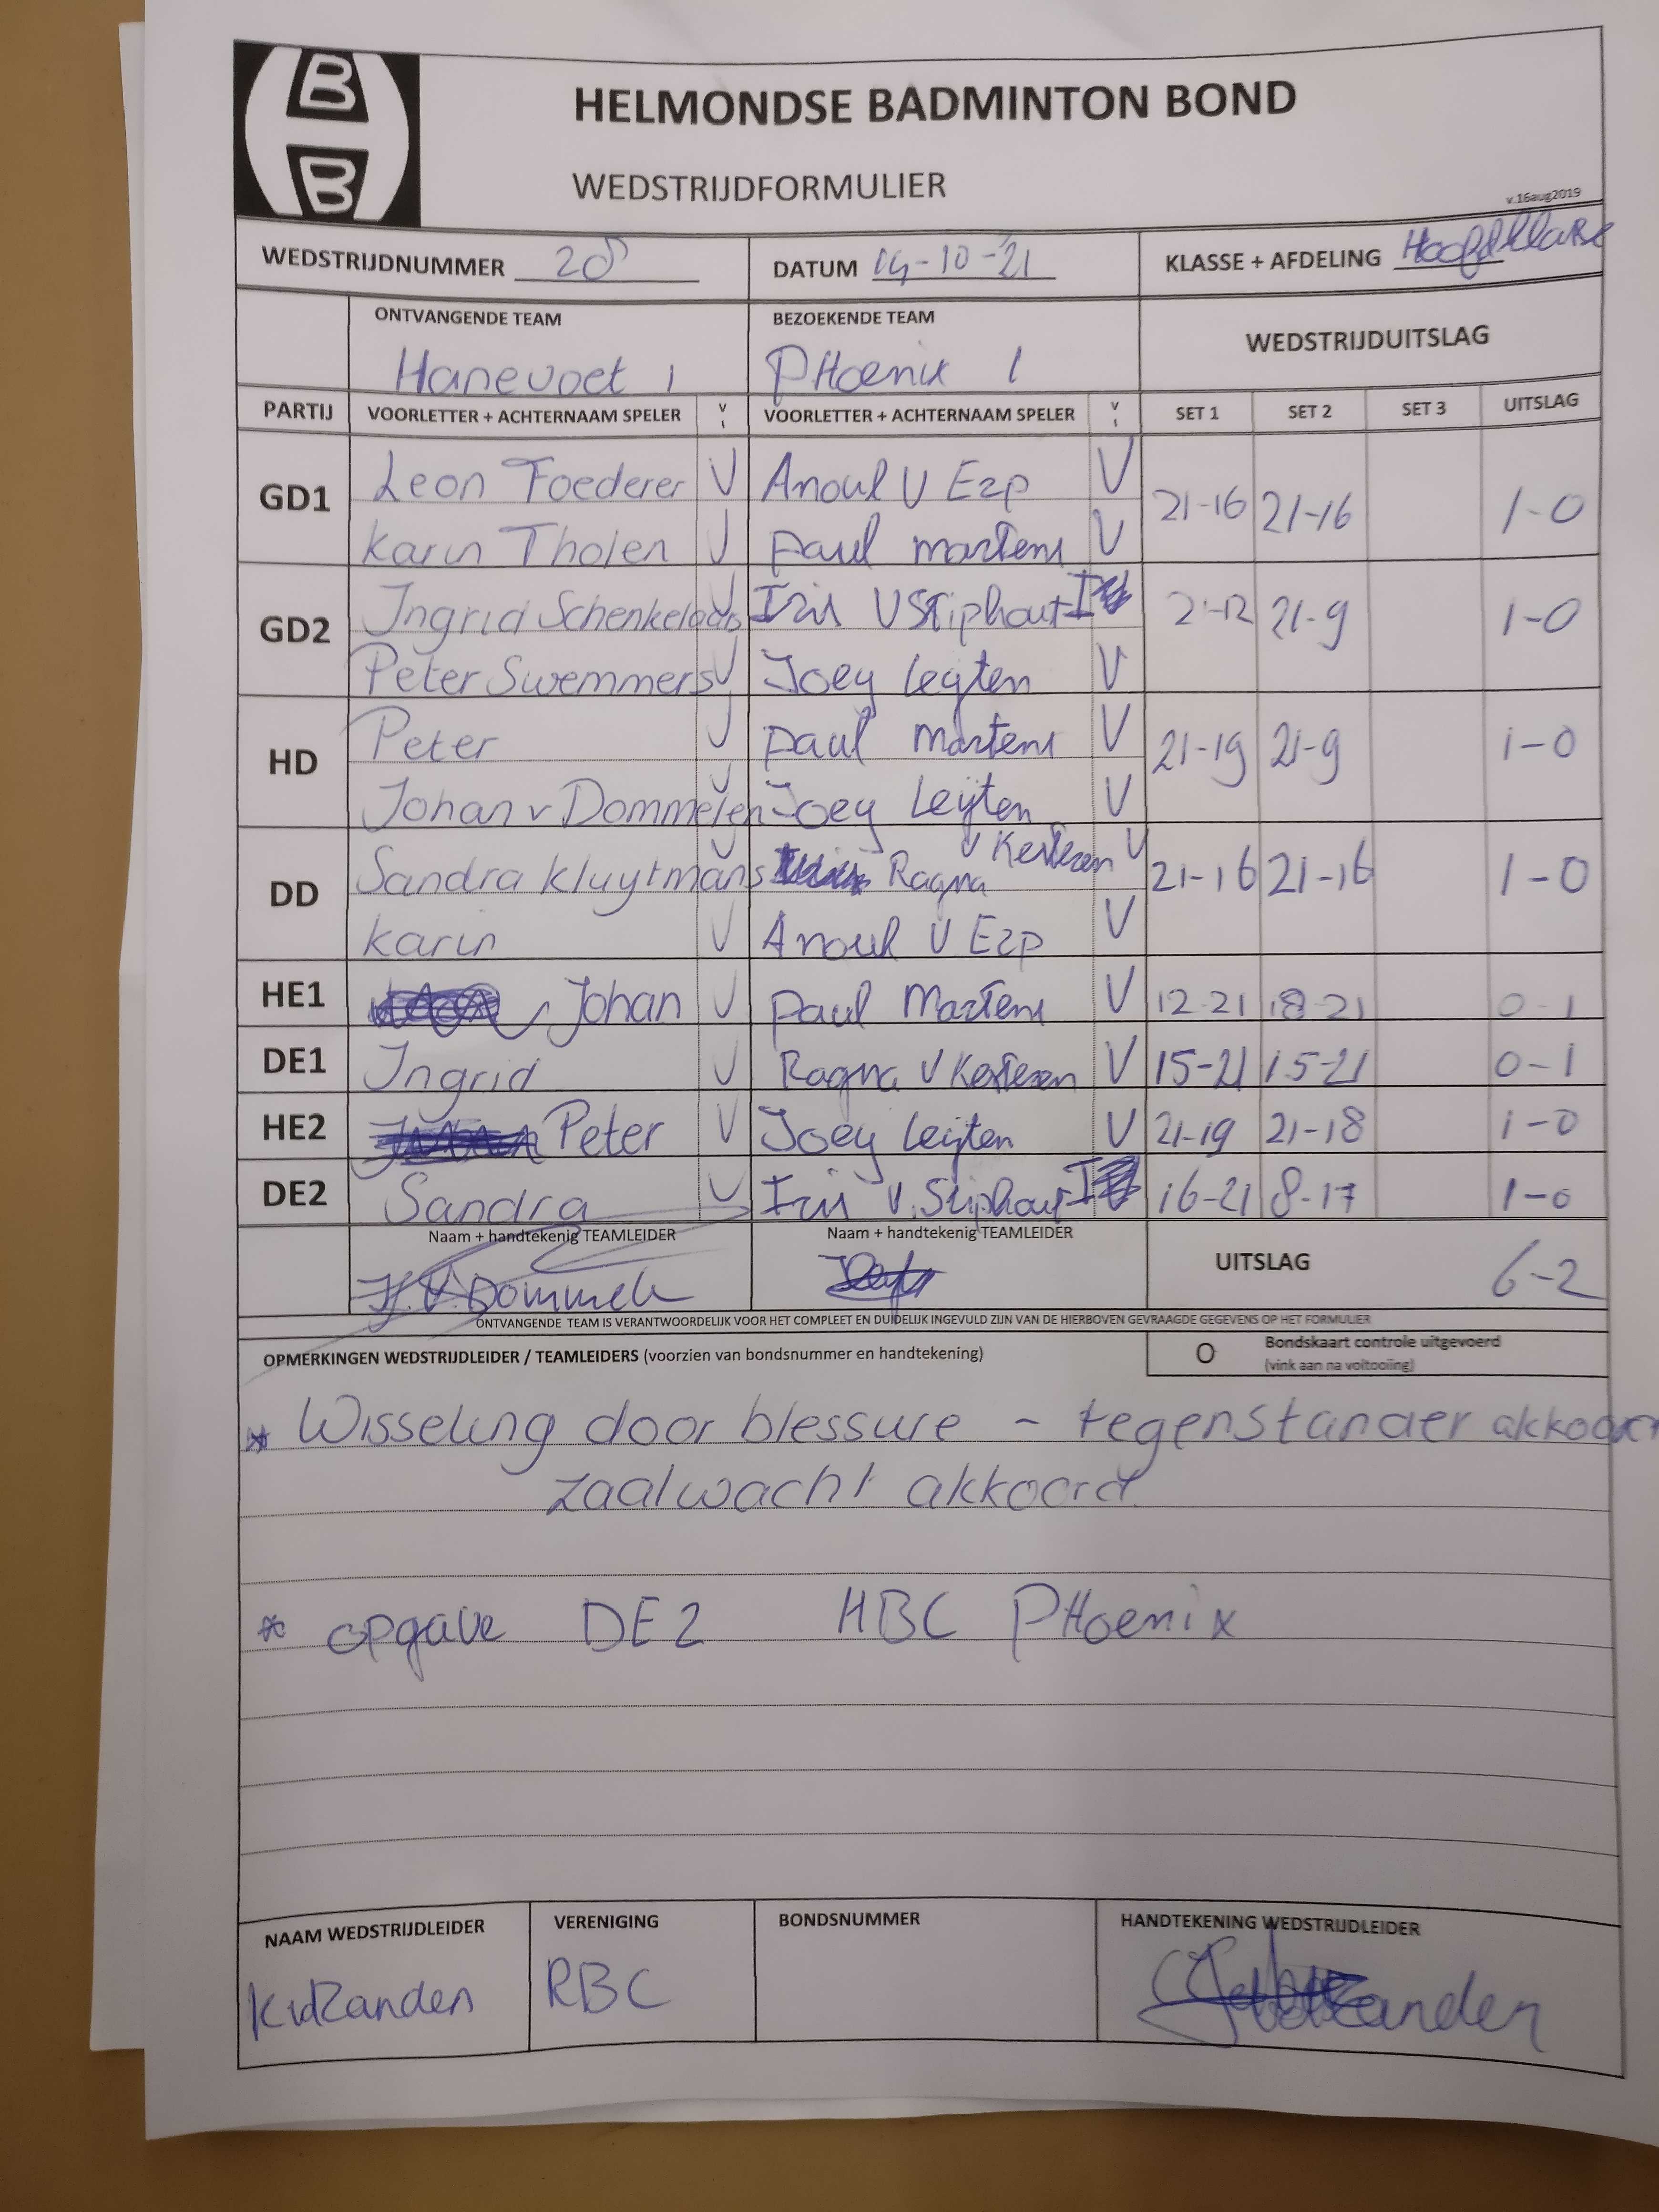 B
B
HELMONDSE BADMINTON BOND
WEDSTRIJDFORMULIER
v.16aug2019
WEDSTRIJDNUMMER 28 DATUM 04-10-'21 KLASSE + AFDELING Hoofdklasse
ONTVANGENDE TEAM BEZOEKENDE TEAM WEDSTRIJDUITSLAG
Hanevoet 1 PHoenix 1
PARTIJ VOORLETTER + ACHTERNAAM SPELER V VOORLETTER + ACHTERNAAM SPELER V SET 1 SET 2 SET 3 UITSLAG
GD1 Leon Foederer V Anouk V Erp V 21-16 21-16 1-0
Karin Tholen V Paul Martens V
GD2 Ingrid Schenkelaars V Iris V Stiphout I 21-12 21-9 1-0
Peter Swemmers V Joey Leijten V
HD Peter V Paul Martens V 21-19 21-9 1-0
Johan v Dommelen V Joey Leijten V
DD Sandra Kluytmans V Ragna V Kerteren V 21-16 21-16 1-0
Karin V Anouk V Erp V
HE1 Johan V Paul Martens V 12-21 18-21 0-1
DE1 Ingrid V Ragna V Kerteren V 15-21 15-21 0-1
HE2 Peter V Joey Leijten V 21-19 21-18 1-0
DE2 Sandra V Iris V. Stiphout I 16-21 8-17 1-0
Naam + handtekenig TEAMLEIDER Naam + handtekenig TEAMLEIDER UITSLAG 6-2
J. V. Dommele
ONTVANGENDE TEAM IS VERANTWOORDELIJK VOOR HET COMPLEET EN DUIDELIJK INGEVULD ZIJN VAN DE HIERBOVEN GEVRAAGDE GEGEVENS OP HET FORMULIER
OPMERKINGEN WEDSTRIJDLEIDER / TEAMLEIDERS (voorzien van bondsnummer en handtekening) O Bondskaart controle uitgevoerd
(vink aan na voltooiing)
* Wisseling door blessure - tegenstander akkoord
zaalwacht akkoord.
* opgave DE2 HBC PHoenix
NAAM WEDSTRIJDLEIDER VERENIGING BONDSNUMMER HANDTEKENING WEDSTRIJDLEIDER
KvdZanden RBC